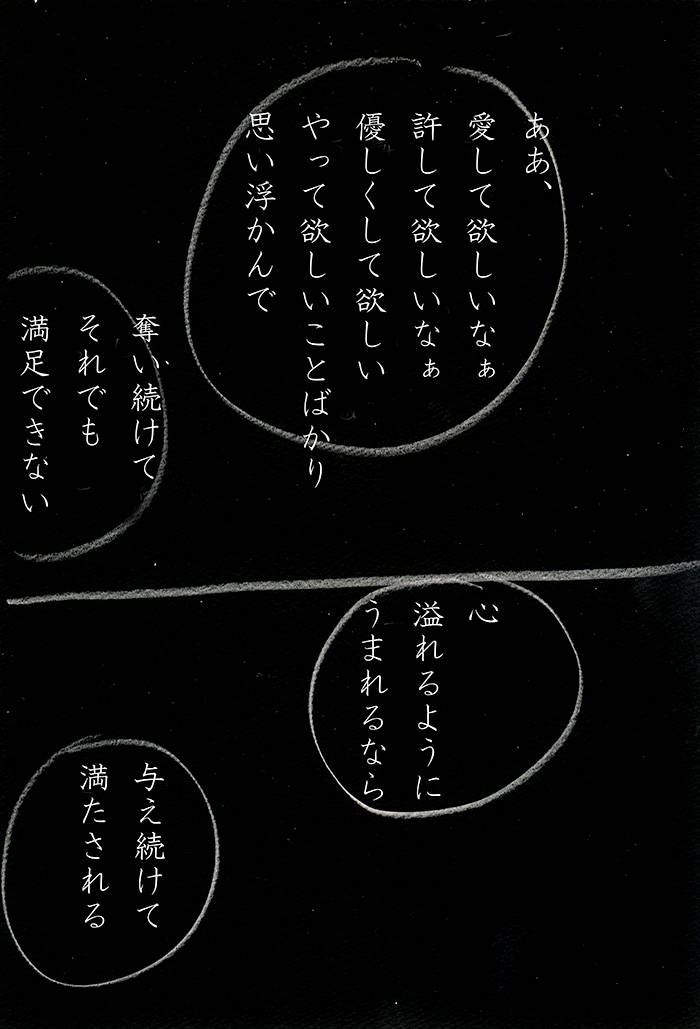 ああ、
愛して欲しいなぁ
許して欲しいなぁ
優しくして欲しい
やって欲しいことばかり
思い浮かんで
奪い続けて
それでも
満足できない
心
溢れるように
うまれるなら
与え続けて
満たされる